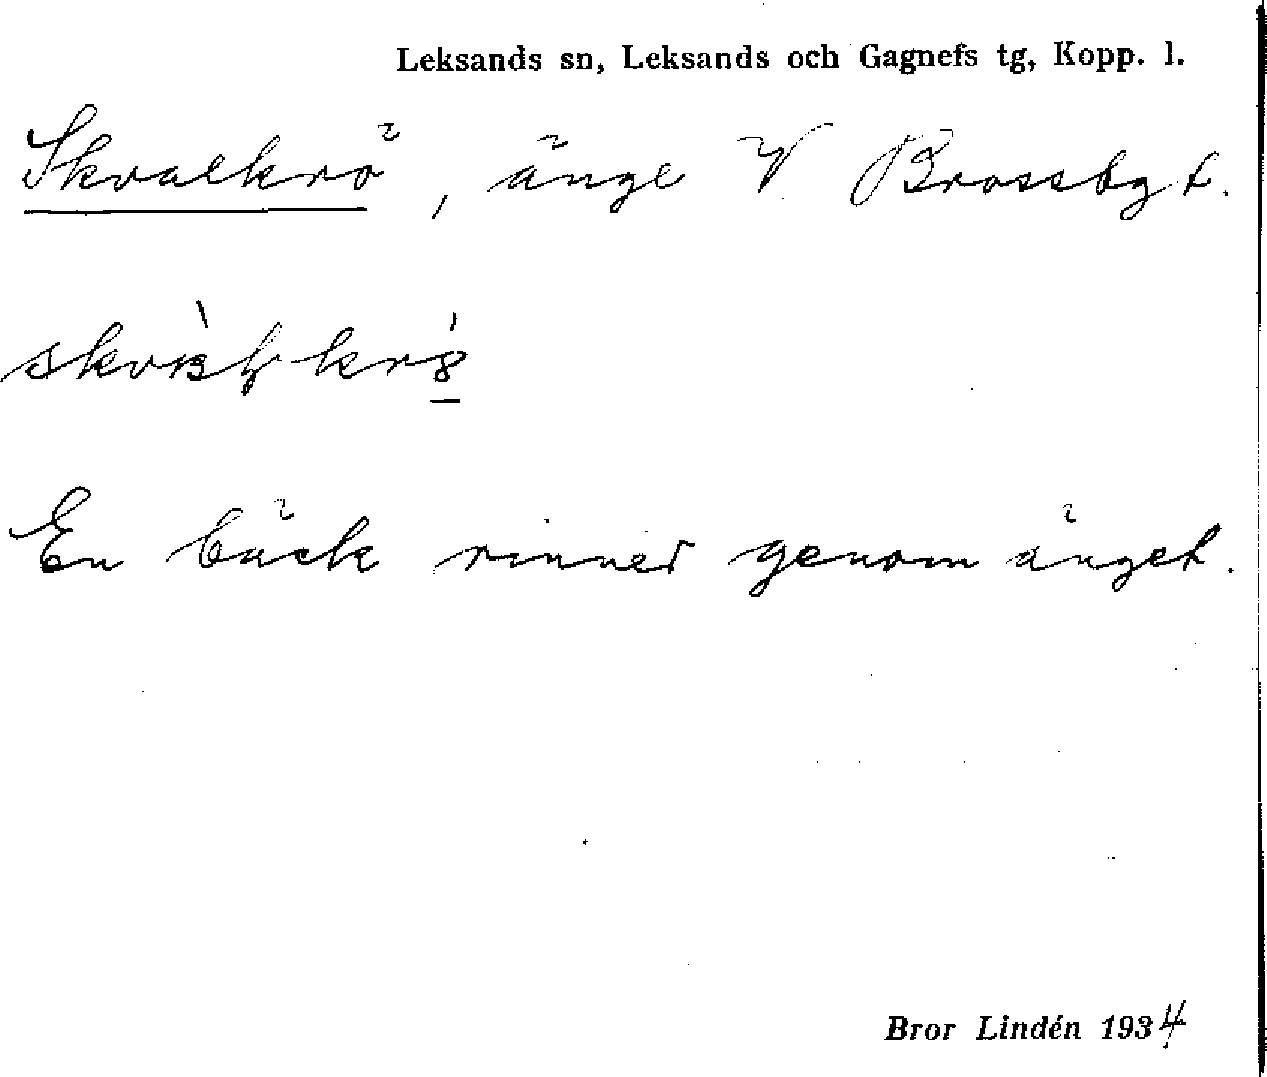 Leksands sn, Leksands och Gagnefs tg, Kopp. l.
Skvalkrö, änge V Brossbgt.
En bäck rinner genom änget.
Bror Lindén 1934